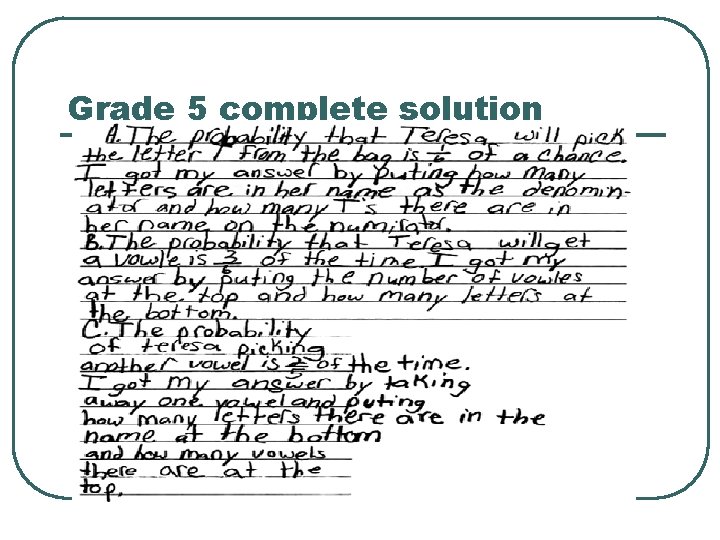 Grade 5 complete solution
A. The probability that Teresa will pick
the letter T from the bag is 1/6 of a chance.
I got my answer by puting how many
letters are in her name as the denomin-
ator and how many T's there are in
her name on the numirator.
B. The probability that Teresa will get
a vowle is 3/6 of the time I got my
answer by puting the number of vowles
at the top and how many letters at
the bottom.
C. The probability
of teresa picking
another vowel is 2/5 of the time.
I got my answer by taking
away one vowel and puting
how many letters there are in the
name at the bottom
and how many vowels
there are at the
top.